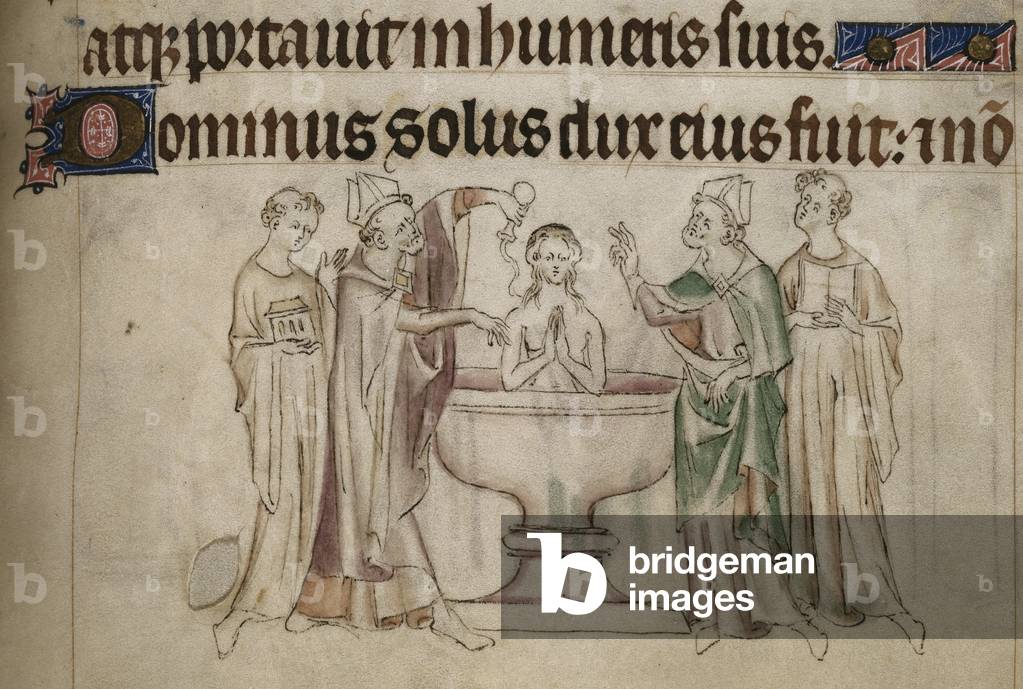 atq portauit in humeris suis.
Dominus solus dux eius fuit: ⁊ nō
bridgeman
images